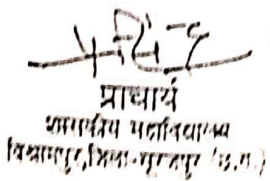 प्राचार्य
शासकीय महाविद्यालय
विश्रामपुर, जिला-सूरजपुर (छ.ग.)